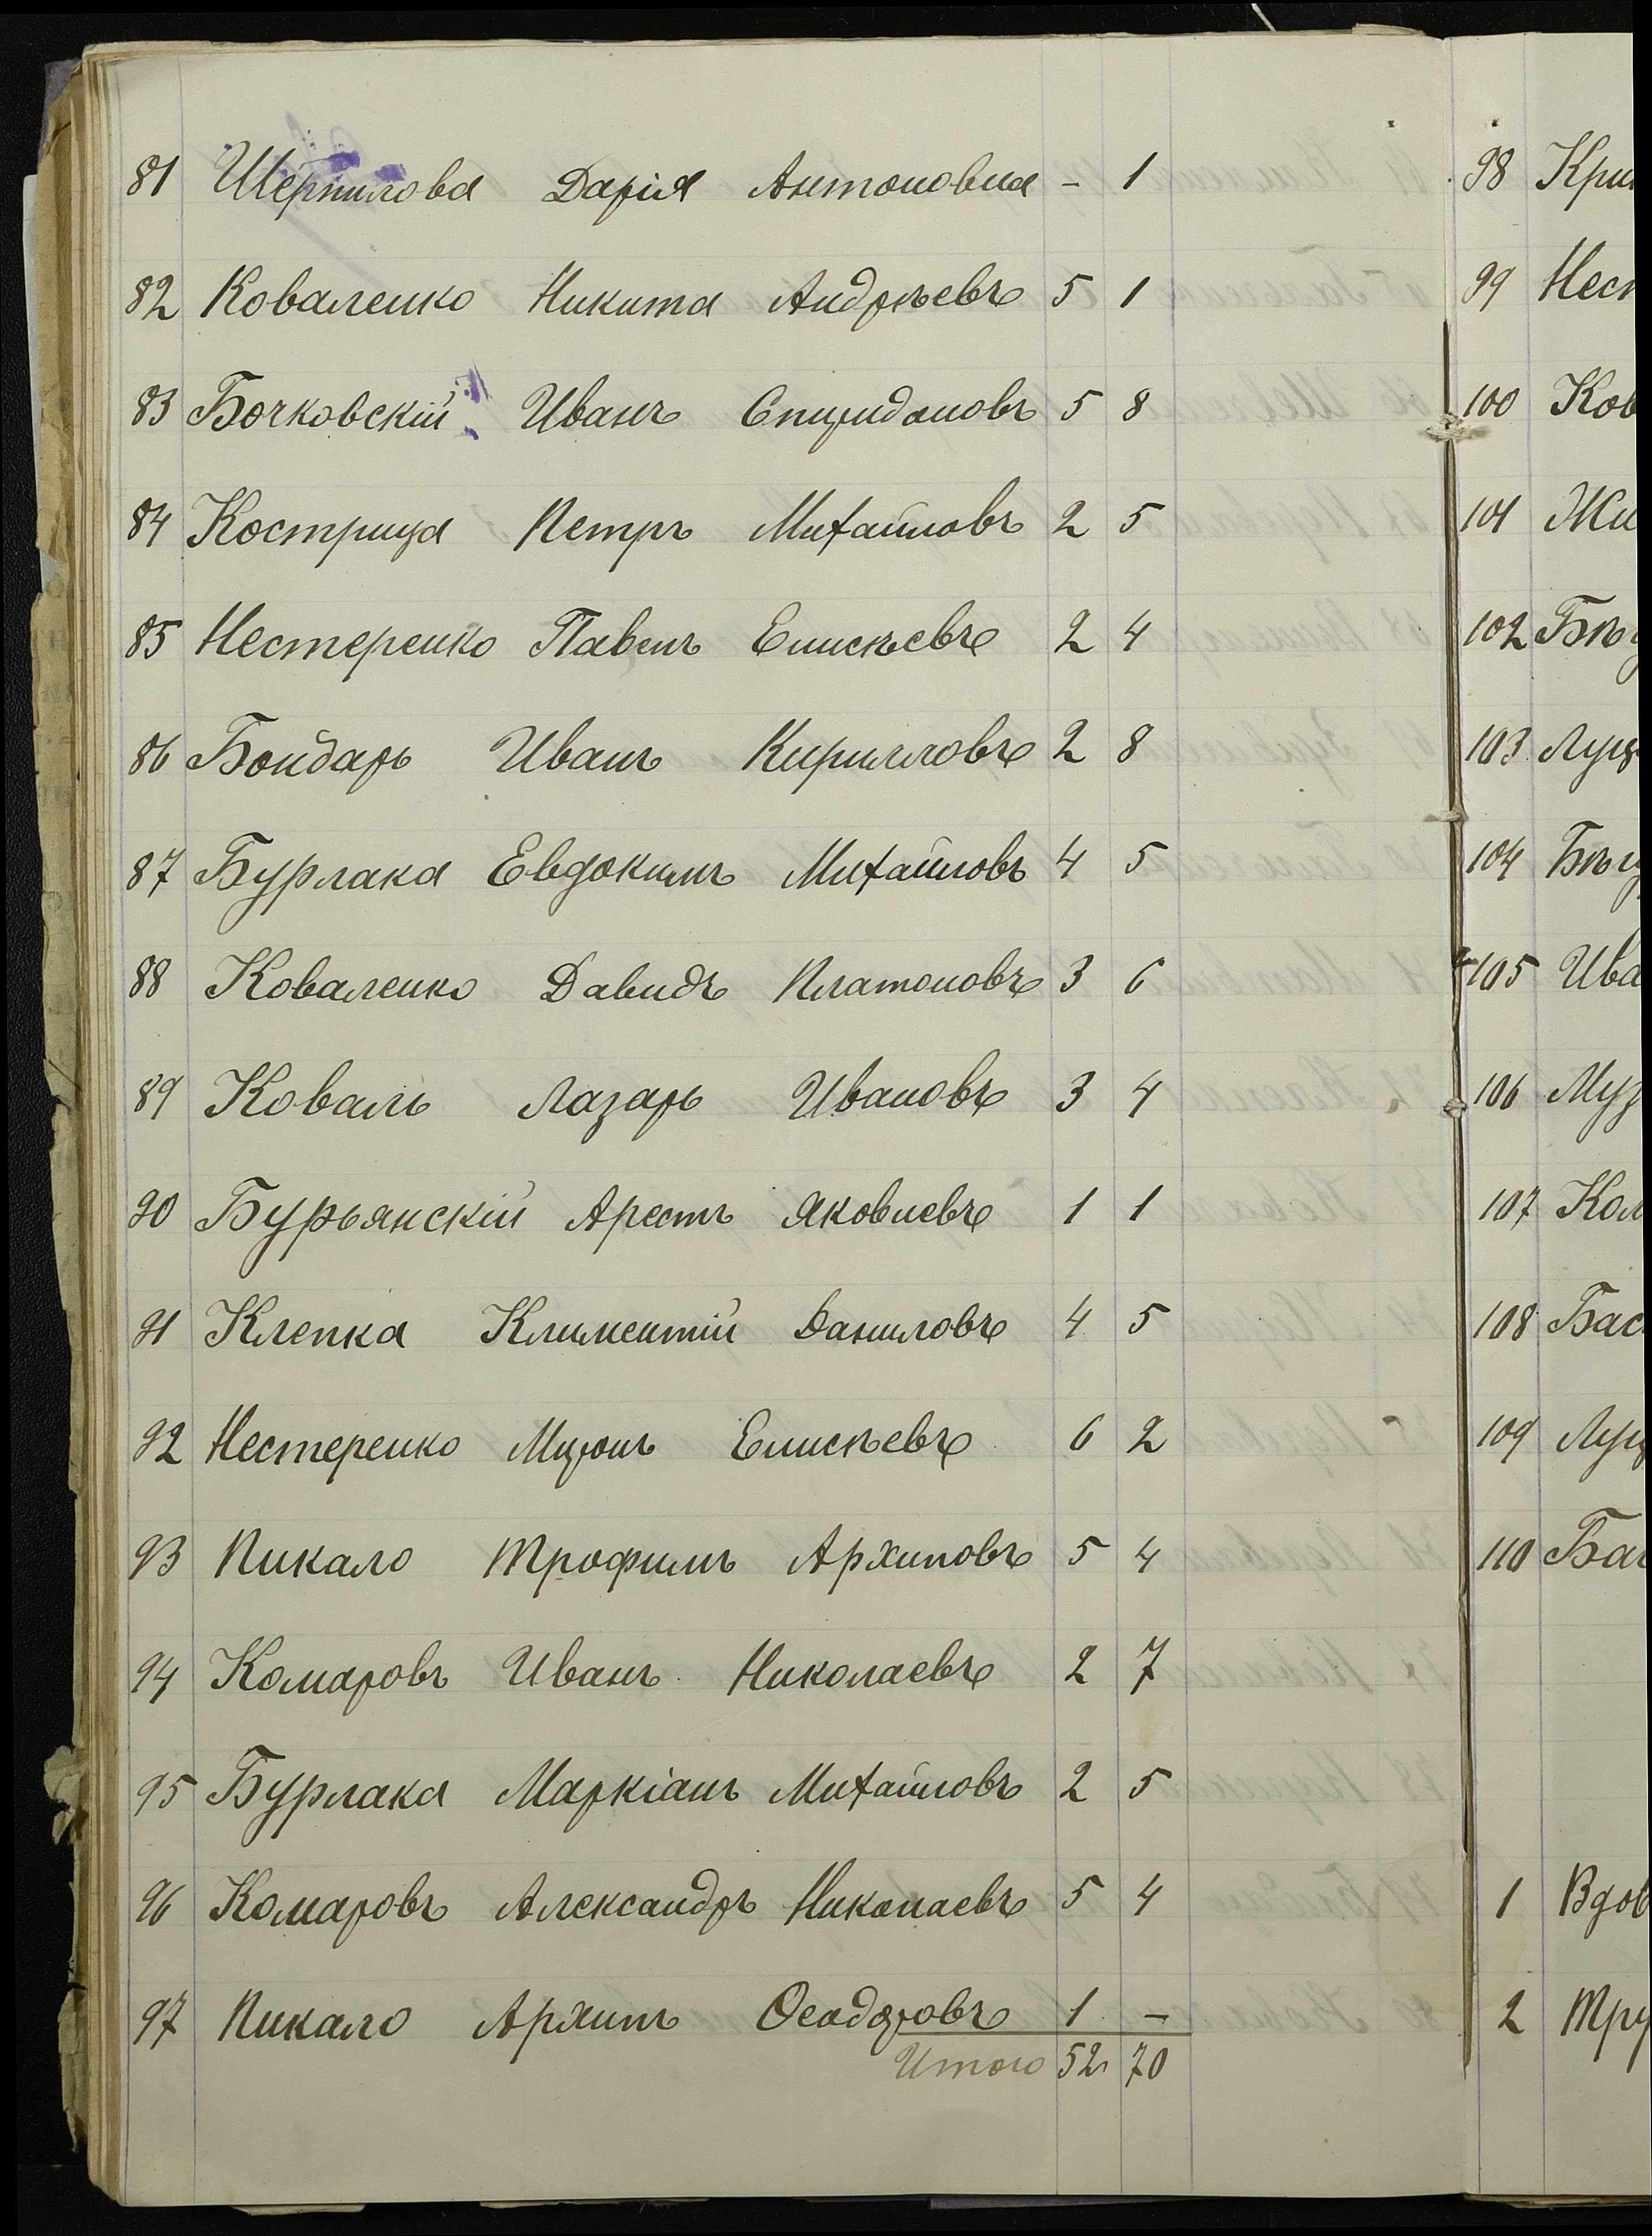 81 Шерпилова Дарія Антоновна - 1
82 Коваленко Никита Андрѣевъ 5 1
83 Бочковскій Иванъ Спиридоновъ 5 8
84 Кострица Петръ Михайловъ 2 5
85 Нестеренко Павелъ Елисѣевъ 2 4
86 Бондарь Иванъ Кирилловъ 2 8
87 Бурлака Евдокимъ Михайловъ 4 5
88 Коваленко Давидъ Платоновъ 3 6
89 Коваль Лазарь Ивановъ 3 4
90 Бурьянскій Арестъ Яковлевъ 1 1
91 Клепка Климентій Даниловъ 4 5
92 Нестеренко Миронъ Елисѣевъ 6 2
93 Пикало Трофимъ Архиповъ 5 4
94 Комаровъ Иванъ Николаевъ 2 7
95 Бурлака Маркіанъ Михайловъ 2 5
96 Комаровъ Александръ Николаевъ 5 4
97 Пикало Архипъ Ѳеодоровъ 1 -
Итого 52 70
98
99 Нест
100 Ков
101
102 Бѣ
103 Луц
104 Бѣ
105 Ива
106 Муз
107
108 Бас
109 Луц
110
1 Вдов
2 Тру